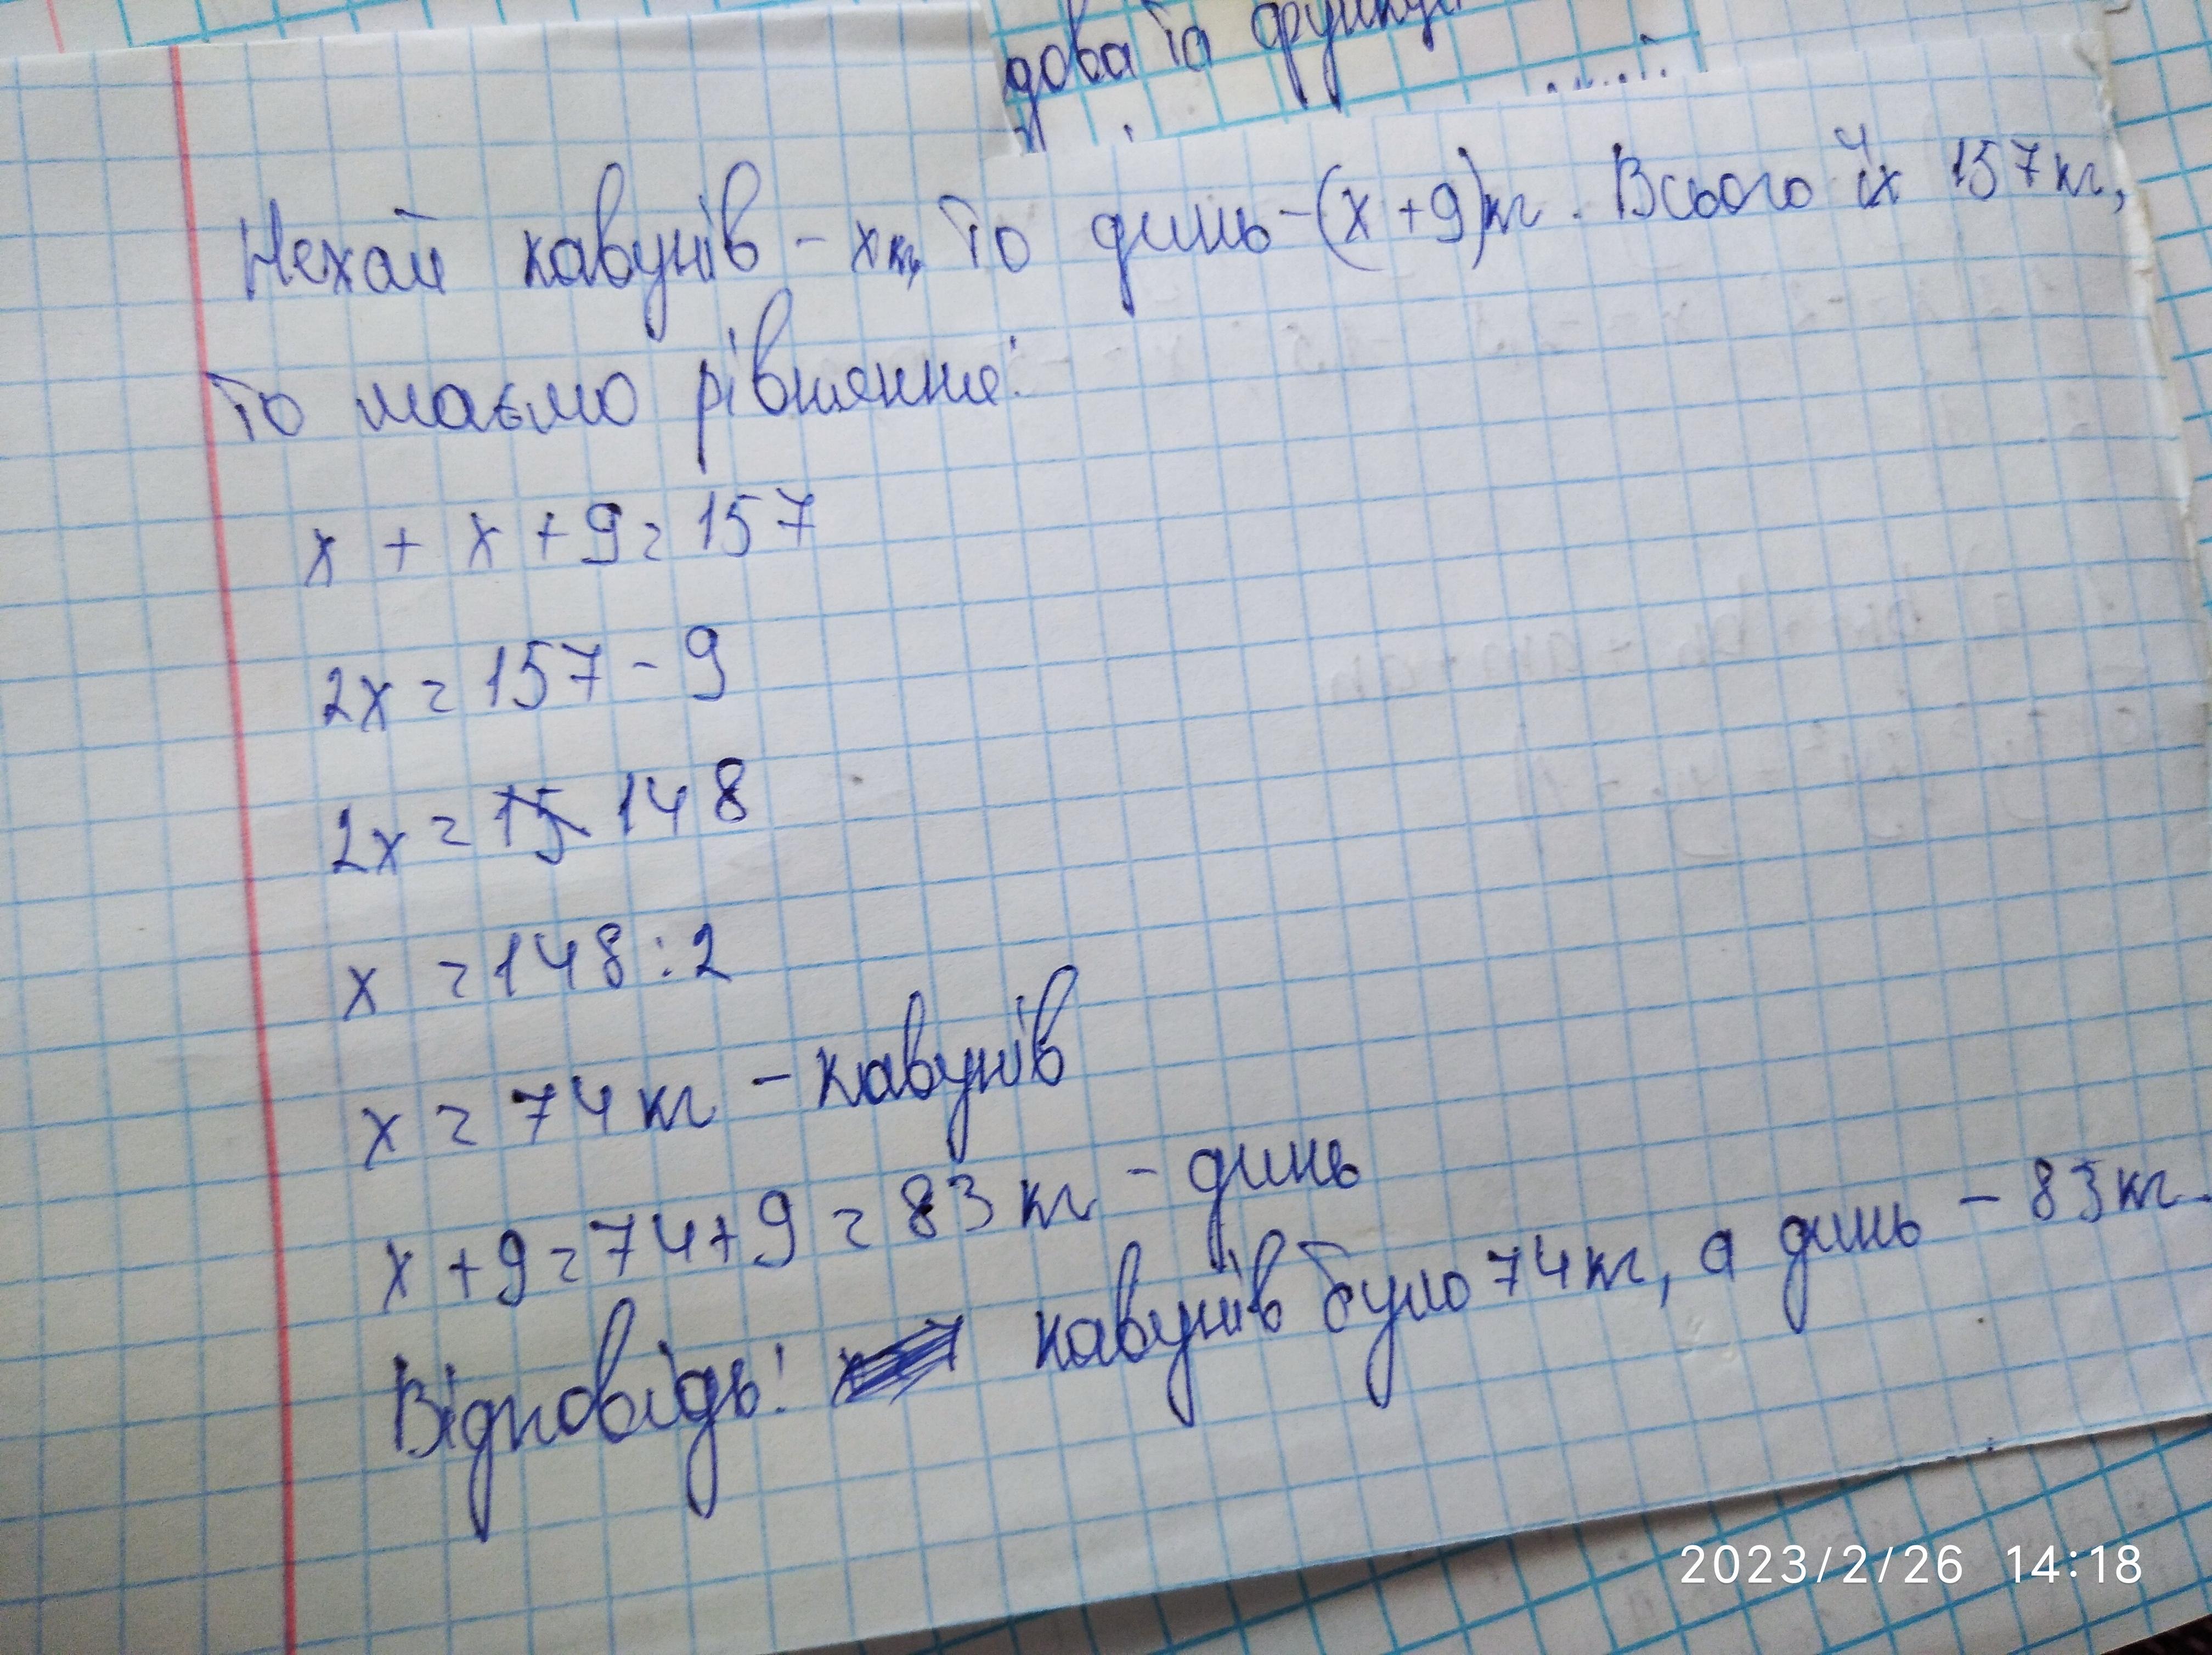 дова та функції
Нехай кавунів - x кг, то динь - (x + 9) кг. Всього їх 157 кг,
то маємо рівняння:
x + x + 9 = 157
2x = 157 - 9
2x = 15 148
x = 148 : 2
x = 74 кг - кавунів
x + 9 = 74 + 9 = 83 кг - динь
Відповідь: кавунів було 74 кг, а динь - 83 кг.
2023/2/26 14:18